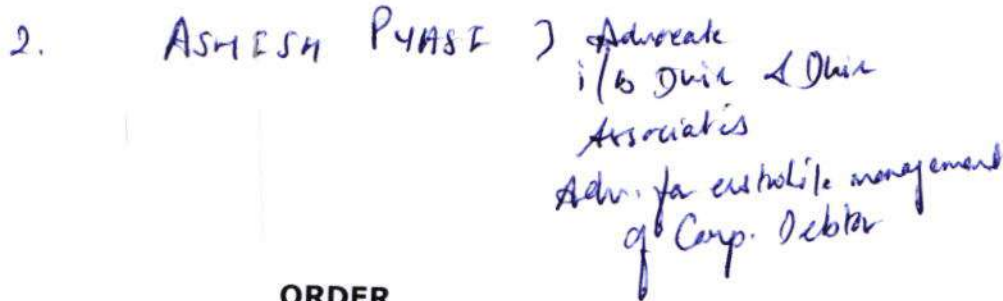 2. ASHISH PYASI } Advocate
i/b Dhir & Dhir
Associates
Adv. for erstwhile management
of Corp. Debtor
ORDER